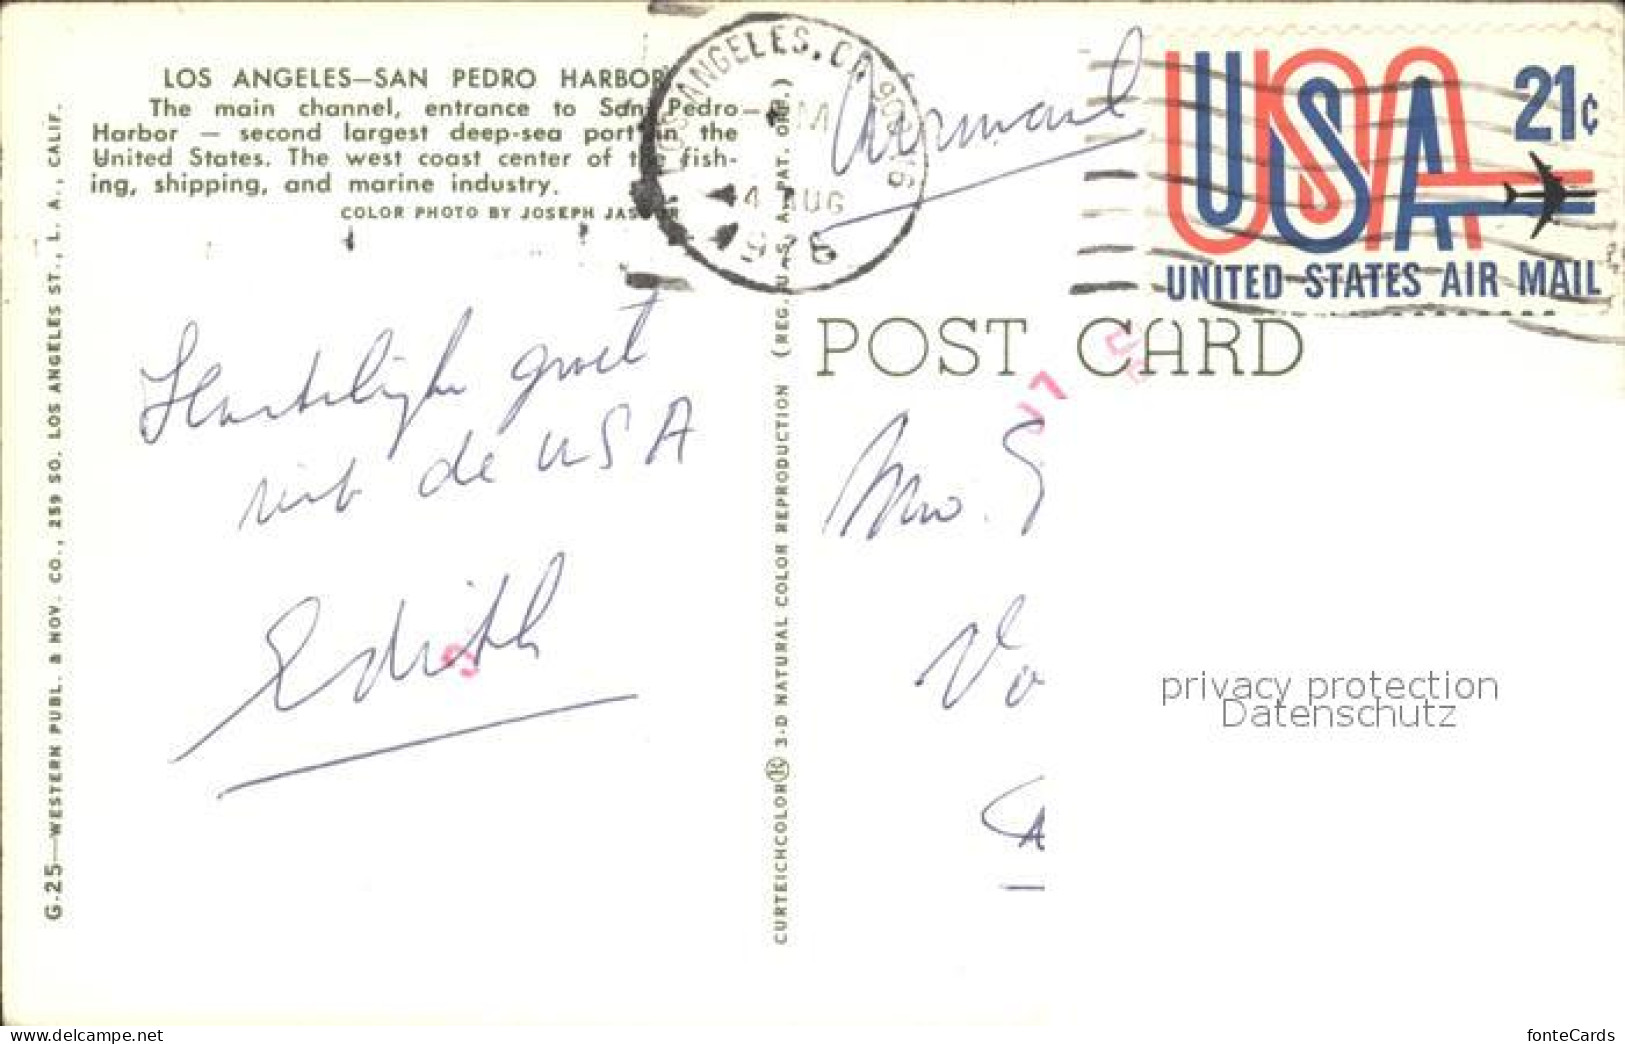 LOS ANGELES—SAN PEDRO HARBOR
The main channel, entrance to San Pedro
Harbor — second largest deep-sea port in the
United States. The west coast center of the fish-
ing, shipping, and marine industry.
COLOR PHOTO BY JOSEPH
G-25—WESTERN PUBL. & NOV. CO., 259 SO. LOS ANGELES ST., L. A., CALIF.
Hartelijke groet
uit de USA
Edith
9
CURTEICHCOLOR® 3-D NATURAL COLOR REPRODUCTION (REG. U.S.A. PAT. OFF.)
ANGELES, CA
AUG
Airmail
USA
21¢
UNITED STATES AIR MAIL
POST CARD
privacy protection
Datenschutz
www.ak-ansichtskarten.de
fonteCards